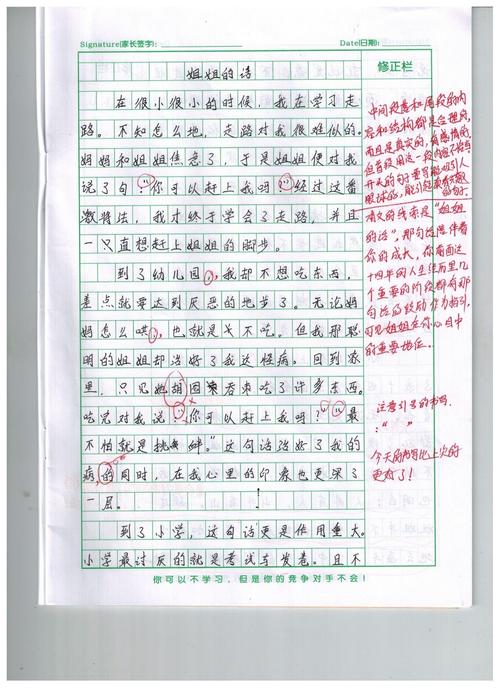 Signature(家长签字):
Date(日期):
修正栏
姐姐的诗
在很小很小的时候，我在学习走
路。不知怎么地，走路对我很难似的。
妈妈和姐姐焦急了，于是姐姐便对我
说了句："你可以赶上我吗"经过这番
激将法，我才终于学会了走路，并且
一只直想赶上姐姐的脚步。
到了幼儿园，我却不想吃东西，
差点就要达到厌恶的地步了。无论妈
妈怎么哄，也就是不吃。但我那聪
明的姐姐却治好了我这怪病。回到家
里，只见姐胡因吞吃了许多东西。
吃完对我说"你可以赶上我吗？"最
不怕就是挑衅。"这句话治好了我的
病的同时，在我心里的印象也更深了
一层。
到了小学，这句话更是作用重大。
小学最讨厌的就是考试与发卷。且不
你可以不学习，但是你的竞争对手不会！
中间段落和尾段的内
容和结构都是合理的，
而且是真实的，有感情的
但首段用这一段
开头的句子要写能吸引人
眼球的，能引起
请文的线索是"姐姐
的话"，那句话陪伴着
你的成长，你前面这
十四年的人生经历里几
个重要的阶段都有那
句话的鼓励作为指引，
可见姐姐在你心目中
的重要地位。
注意引号的书写：
"　"
今天的内容比上次的
更好了！